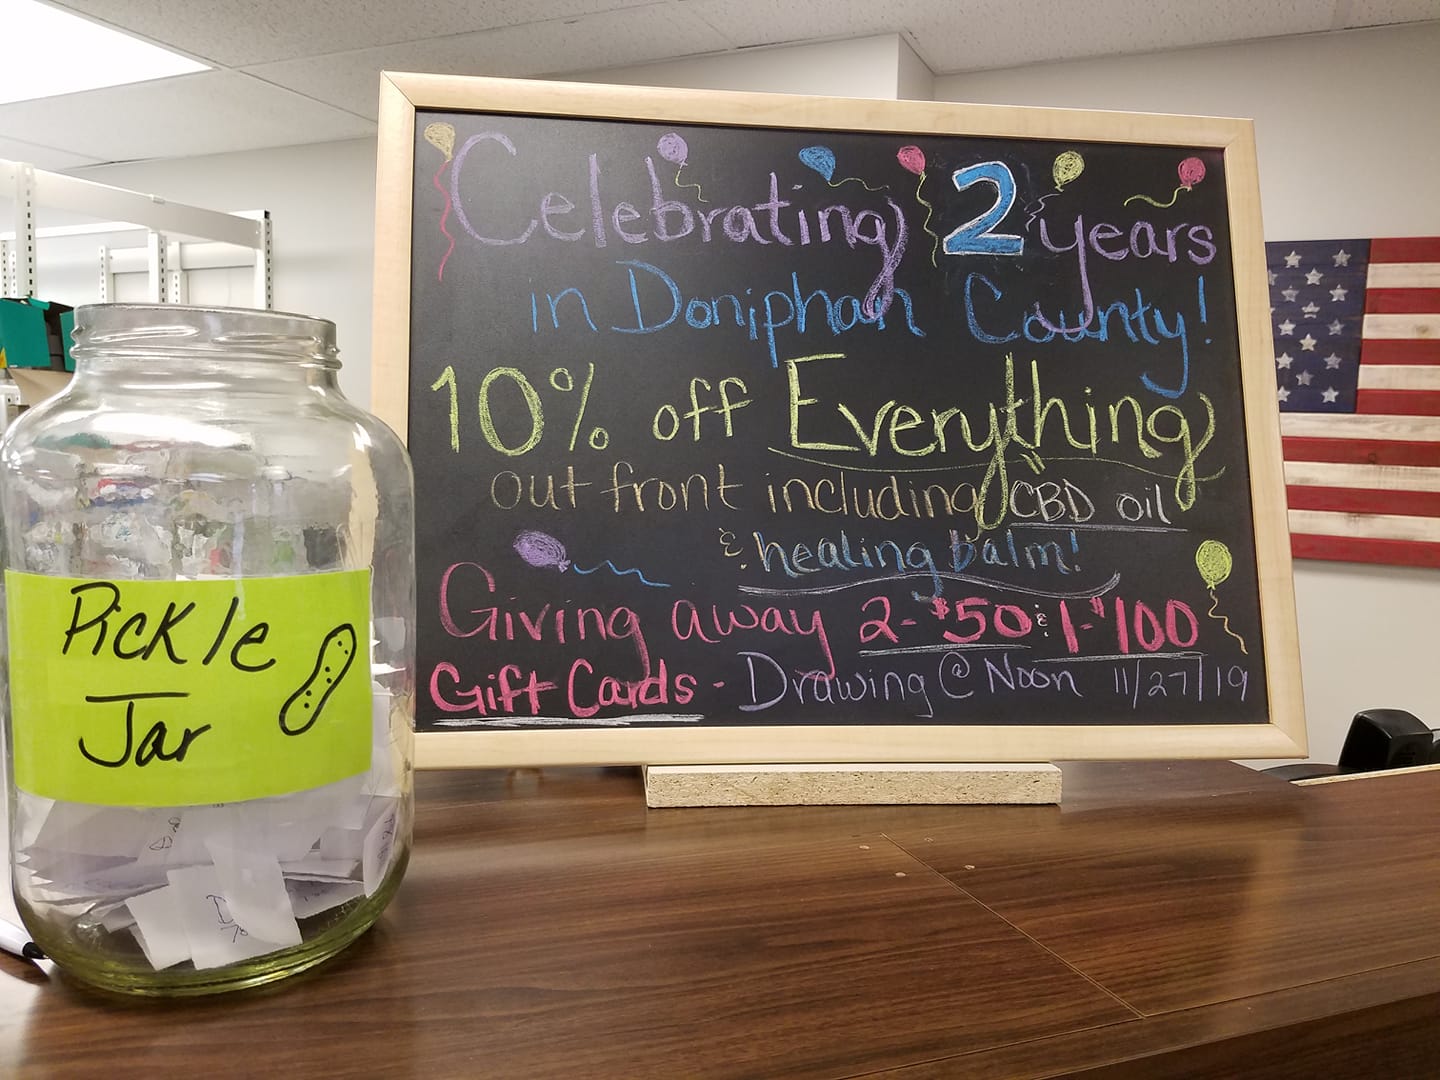 Celebrating 2 years
in Doniphan County!
10% off Everything
out front including CBD oil
& healing balm!
Giving away 2-$50 & 1-$100
Gift Cards - Drawing @ Noon 11/27/19
Pickle
Jar